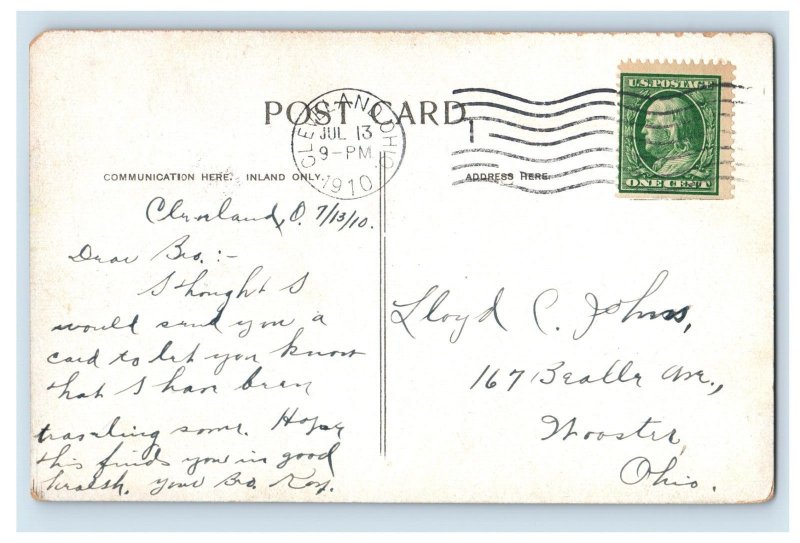 POST CARD
CLEVELAND, OHIO
JUL 13
9-PM
1910
1
U.S. POSTAGE
ONE CENT
COMMUNICATION HERE. INLAND ONLY.
ADDRESS HERE.
Cleveland, O. 7/13/10.
Dear Bro.:-
I thought I
would send you a
card to let you know
that I have been
traveling some. Hope
this finds you in good
health. Your Bro. Roy.
Lloyd C. Johns,
167 Bealle Ave.,
Wooster,
Ohio.